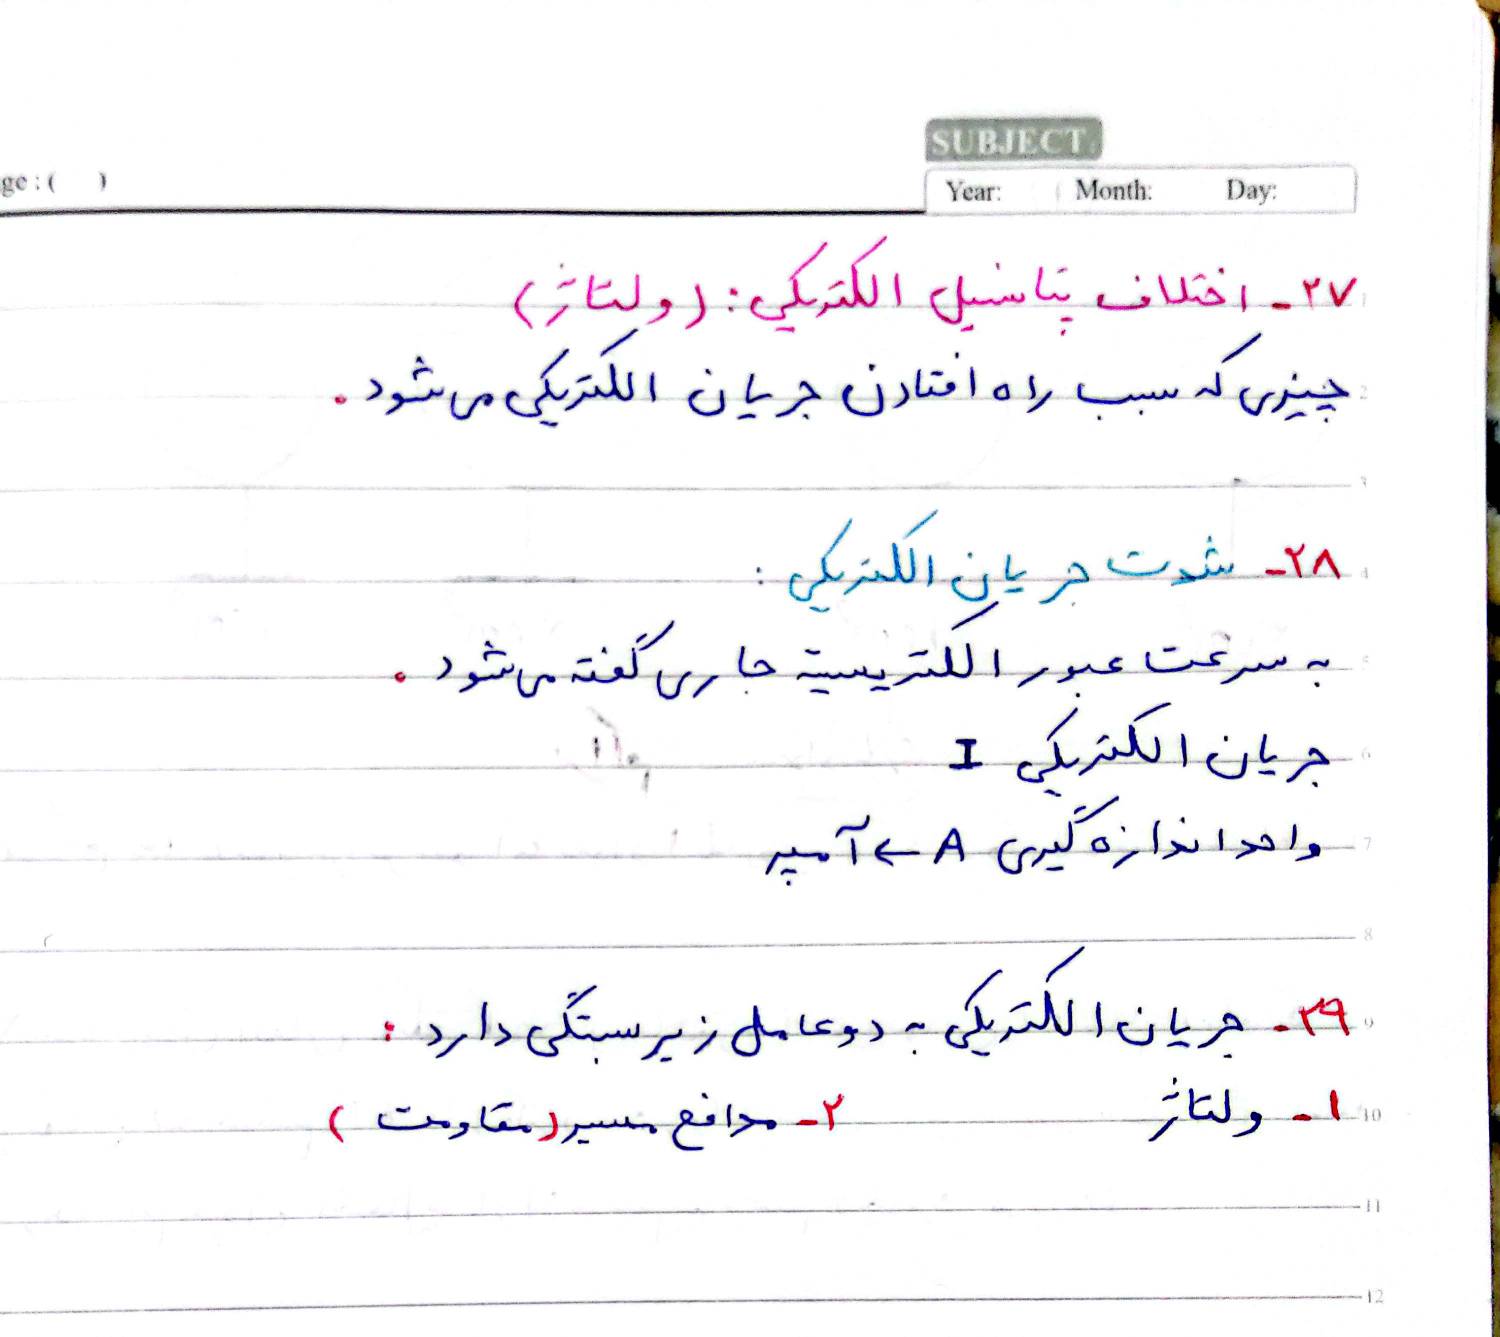 SUBJECT:
ge : ( )
Year: Month: Day:
۲۷- اختلاف پتانسیل الکتریکی : (ولتاژ)
چیزی که سبب راه افتادن جریان الکتریکی می شود .
۲۸- شدت جریان الکتریکی :
به سرعت عبور الکتریسیته جاری گفته می شود .
جریان الکتریکی I
واحد اندازه گیری A ← آمپر
۲۹- جریان الکتریکی به دو عامل زیر بستگی دارد :
۱- ولتاژ ۲- موافع مسیر (مقاومت)